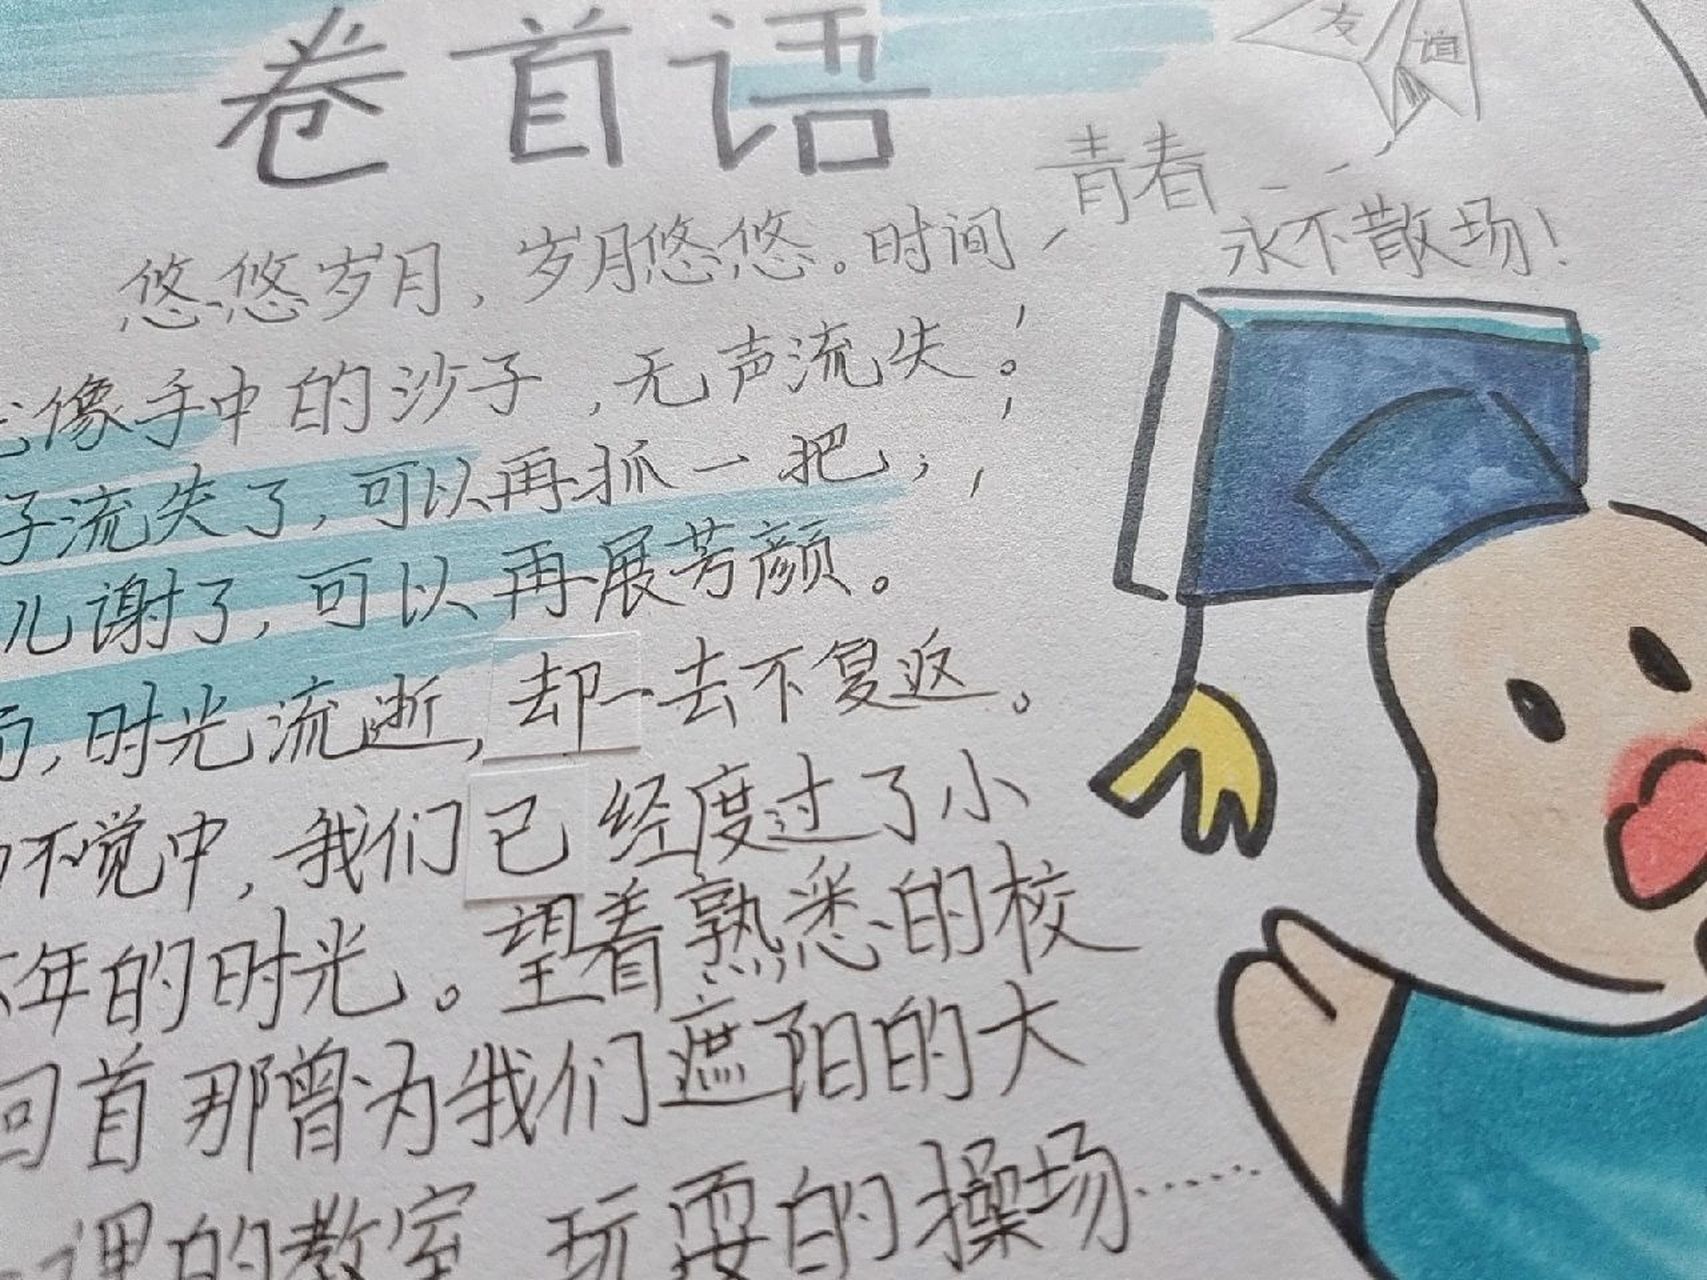 卷首语
友谊
青春
永不散场！
悠悠岁月，岁月悠悠。时间，
像手中的沙子，无声流失。
子流失了，可以再抓一把；
儿谢了，可以再展芳颜。
而，时光流逝，却一去不复返。
不觉中，我们已经度过了小
年的时光。望着熟悉的校
回首那曾为我们遮阳的大
课的教室 玩耍的操场……